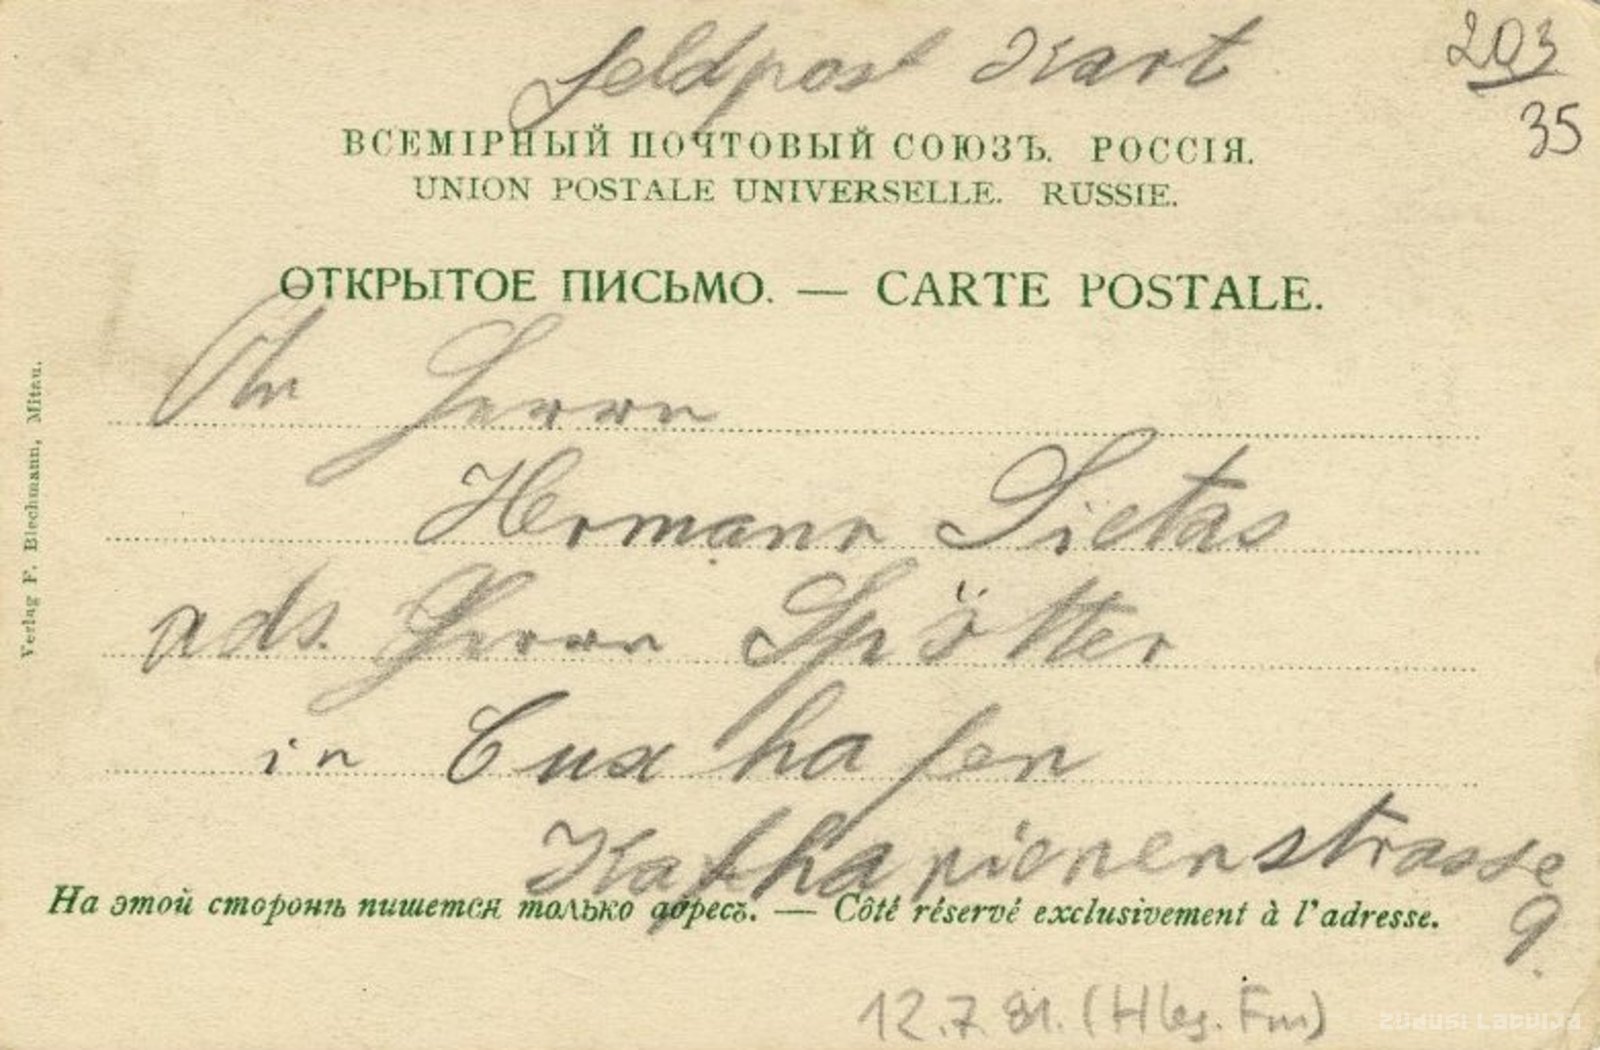 feldpost Kart
203
35
ВСЕМІРНЫЙ ПОЧТОВЫЙ СОЮЗЪ. РОССІЯ.
UNION POSTALE UNIVERSELLE. RUSSIE.
ОТКРЫТОЕ ПИСЬМО. — CARTE POSTALE.
An Herrn
Hermann Sietas
ads. Herrn Spötter
in Cuxhafen
Katharienenstrasse
На этой сторонѣ пишется только адресъ. — Côté réservé exclusivement à l'adresse.
9.
12.7.81. (Hbg. Fm)
Verlag F. Blechmann, Mitau.
zudusi Latvija